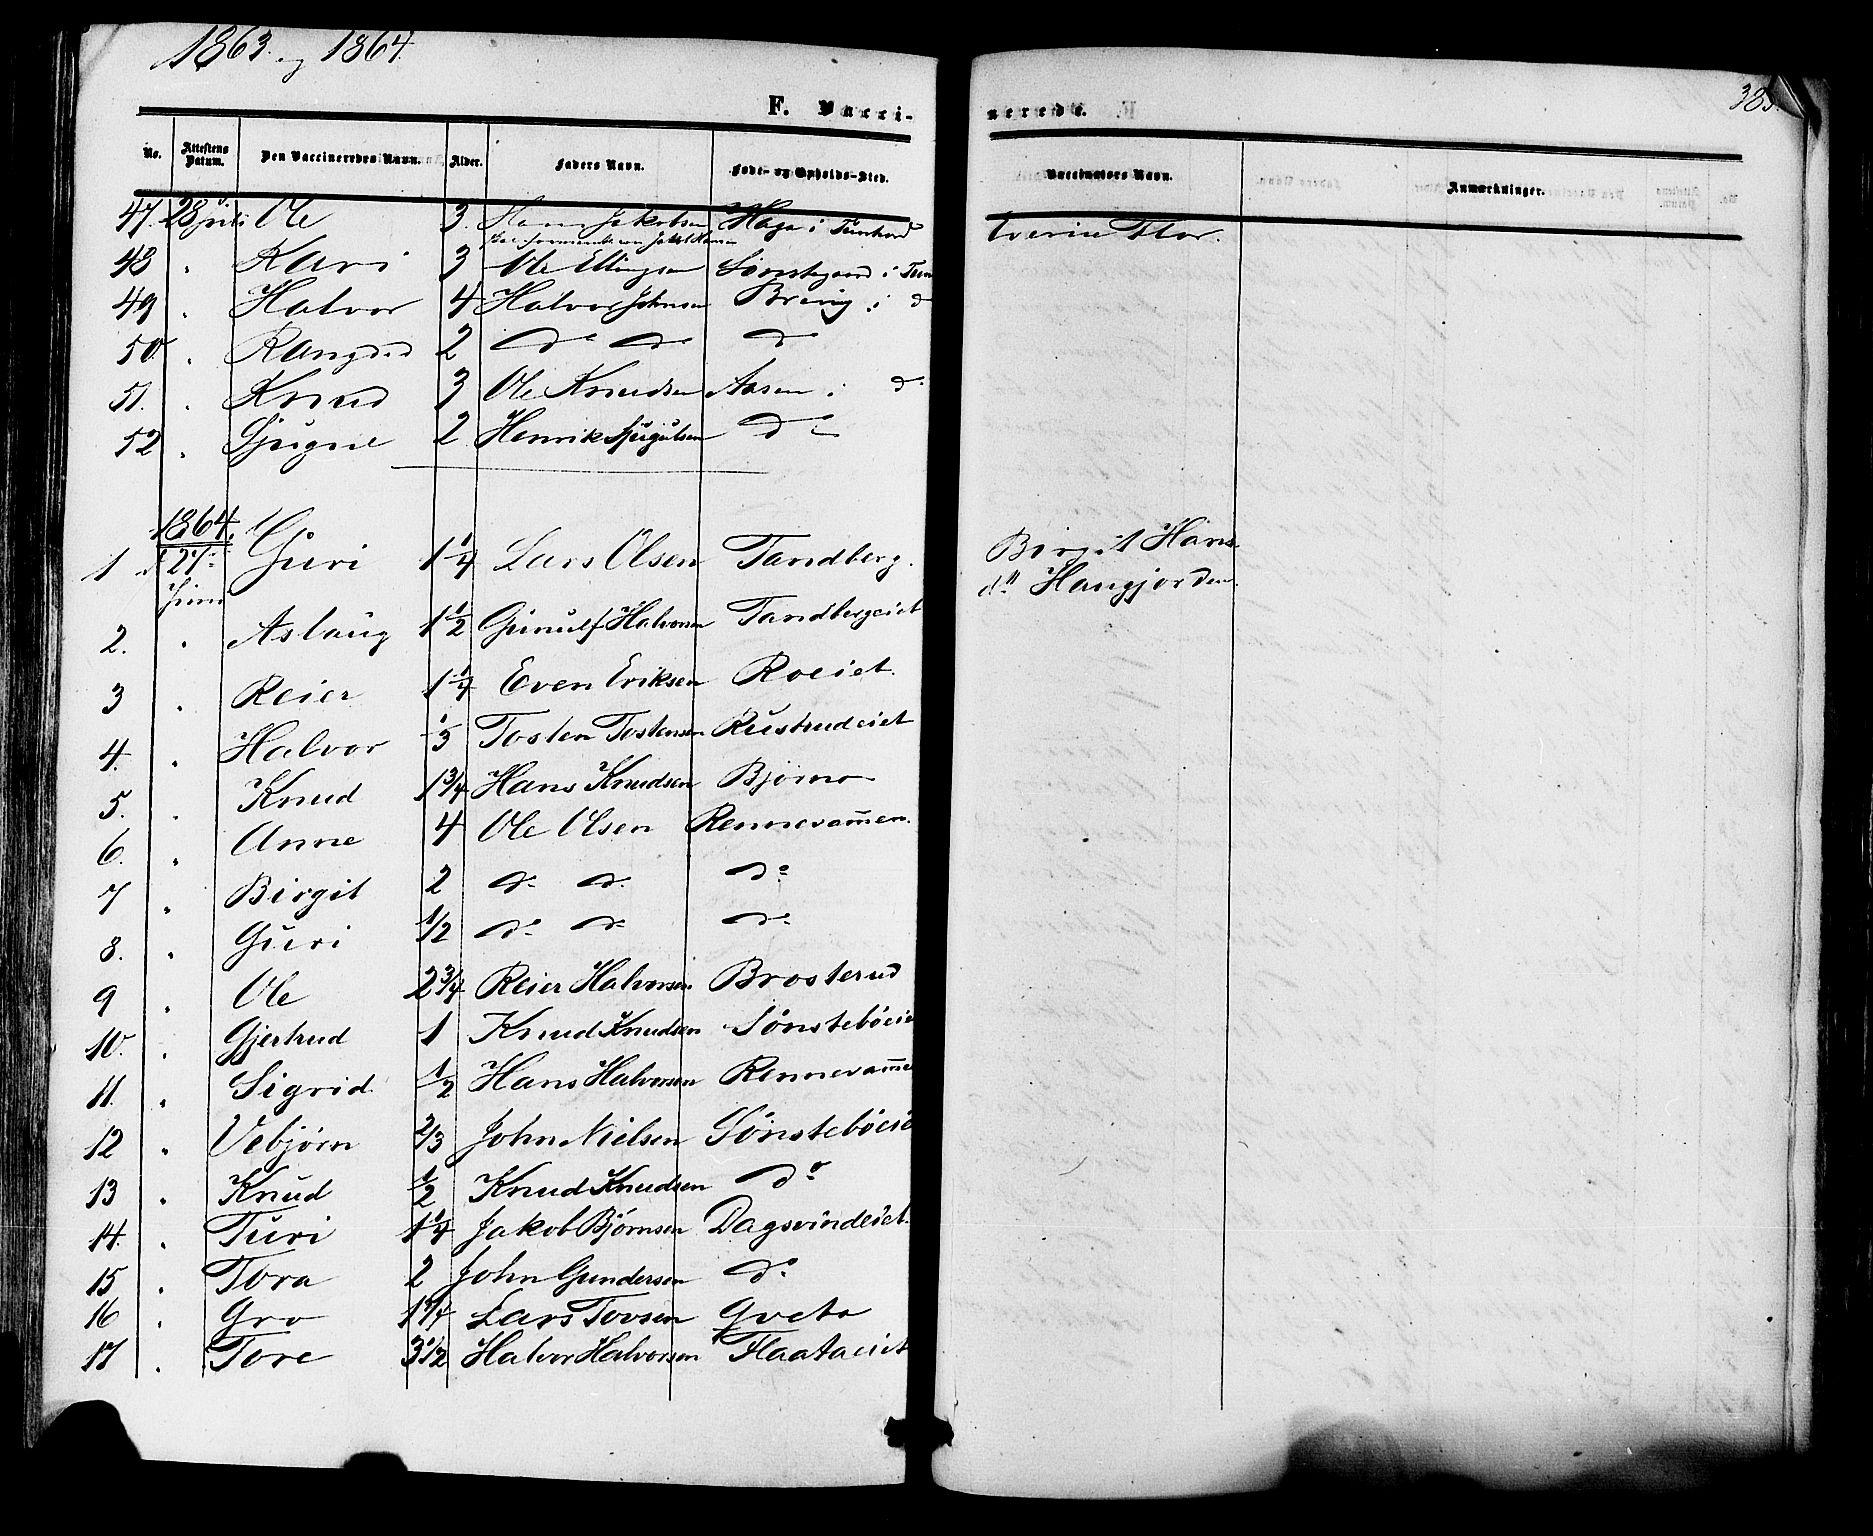 1863. og 1864.
385.
F. Vacci-
nerede.
No. Attestens Datum. Den Vaccineredes Navn. Alder. Faders Navn. Føde- og Opholds-Sted. Vaccinators Navn. Anmærkninger.
47. 28 juli Ole 3. Hans Jakobsen Haga i Tunhovd
48 " Kari 3 Ole Ellingsen Sønstegaard i Tun
49 " Halvor 4 Halvor Johnsen i do
50. " Rangdid 2 do do do
51. " Knud 3 Ole Knudsen Aasen i do
52 " Gjugne 2 Henrik do
1864.
1 d 21: Juni Guri 1 1/4 Lars Olsen Tandberg. Birgit Hans-
dtr Haugjorden
2. " Aslaug 1 1/2 Gunulf Halvorsen Tandbergeiet
3 " Reier 1 1/4 Even Eriksen Roeiet.
4. " Halvor 1/3 Tosten Tostensen Rustrudeiet
5. " Knud 1 3/4 Hans Knudsen Bjørno
6. " Anne 4 Ole Olsen Rennevam̄en.
7 " Birgit 2 do do do
8. " Guri 1/2 do do do
9 " Ole 2 3/4 Reier Halvorsen Brosterud
10. " Gjertrud 1 Knud Knudsen Sønstebøeie
11. " Sigrid 1/2 Hans Halvorsen Rennevam̄e
12 " Vebjørn 2/3 John Nielsen Sønstebøeie
13 " Knud 1/2 Knud Knudsen do
14. " Turi 1 1/4 Jakob Bjørnsen Dagsvindeiet.
15 " Tora 2 John Gundersen do
16 " Gro 1 1/4 Lars Tovsen Qveto
17 " Tore 3 1/2 Halvor Halvorsen Flaataeiet